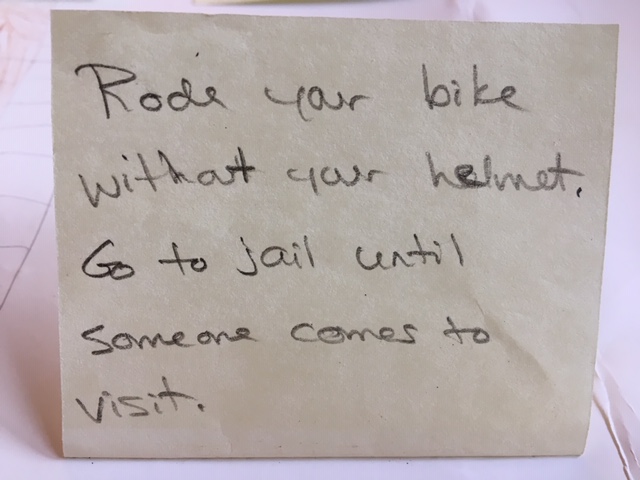 Rode your bike
without your helmet.
Go to jail until
someone comes to
visit.